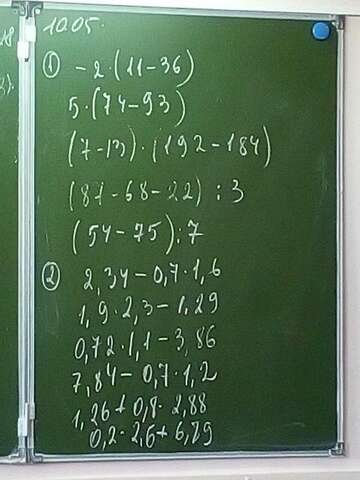 10.05.
① -2·(11-36)
5·(74-93)
(7-13)·(192-184)
(81-68-22):3
(54-75):7
② 2,34-0,7·1,6
1,9·2,3-1,29
0,72·1,1-3,86
7,84-0,7·1,2
1,26+0,8·2,88
0,2·2,6+6,29